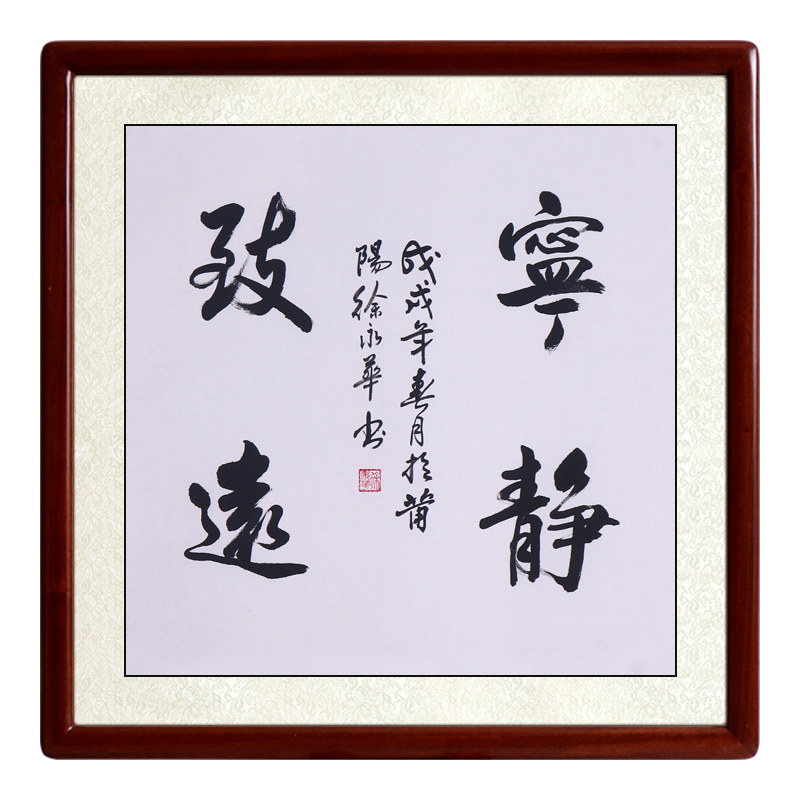 寧靜
致遠
戊戌年春月於莆
陽徐永華书